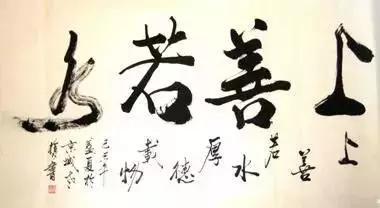 上善若水
上善若水厚德載物
己亥年
盛夏於
京城
書